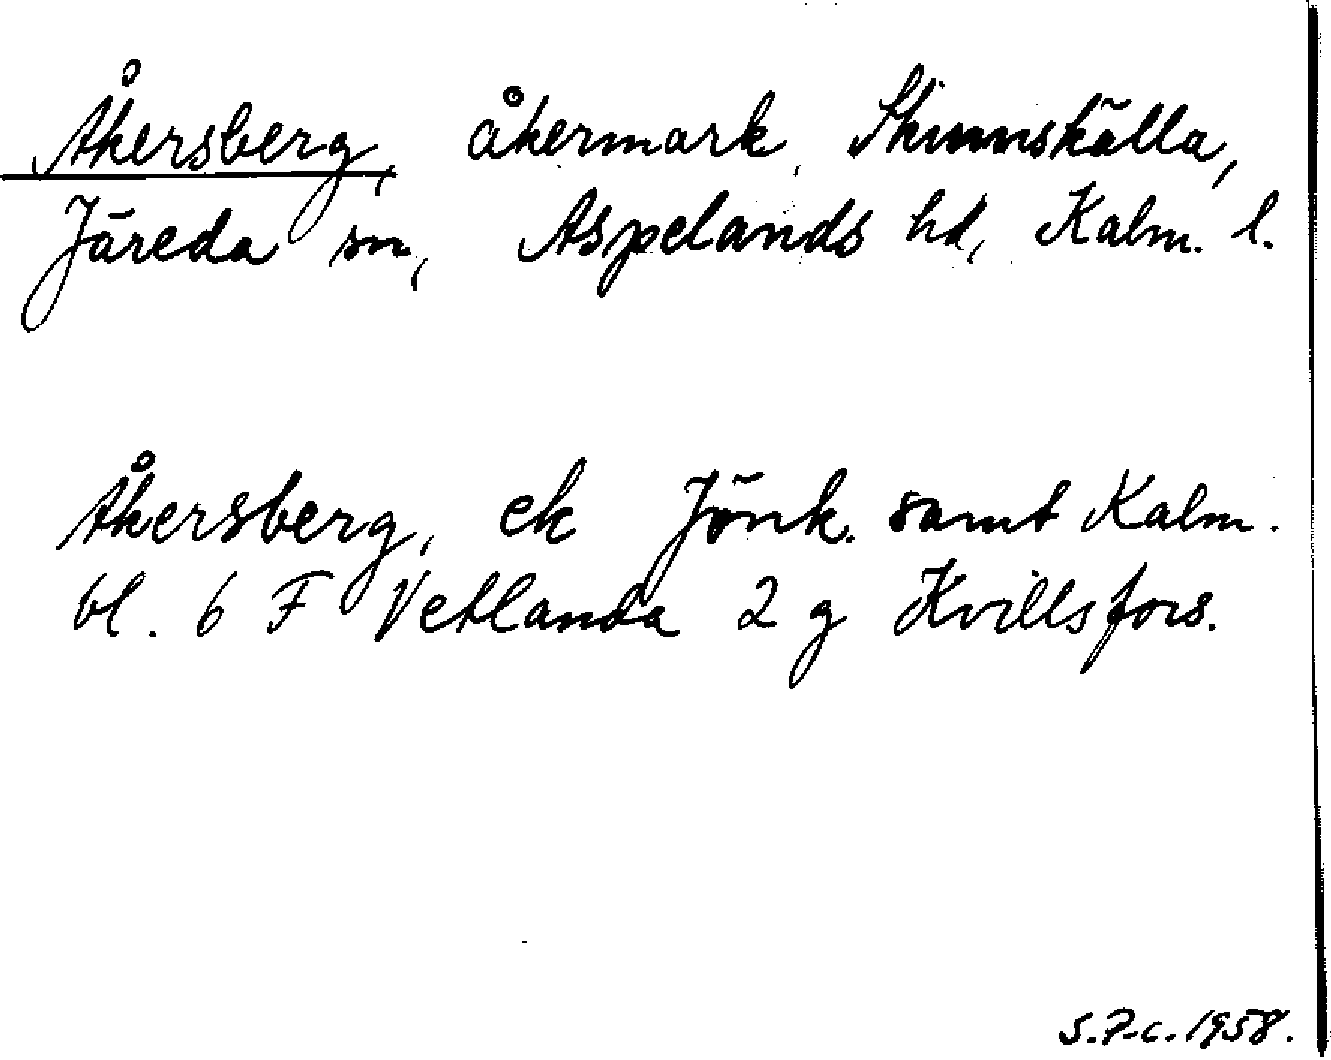 Åkersberg, åkermark, Skinnskälla,
Järeda sn, Aspelands hd, Kalm. l.
Åkersberg, ek Jönk. samt Kalm.
bl. 6 F Vetlanda 2 g Kvillsfors.
S.P-c. 1958.